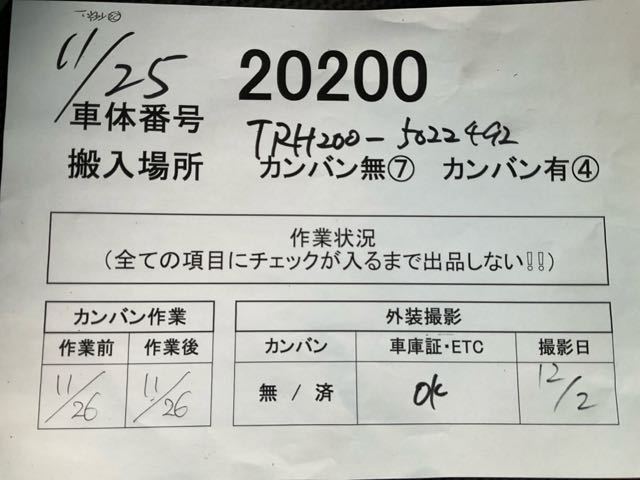 11/25
20200
車体番号 TRH200-5022492
搬入場所 カンバン無⑦ カンバン有④
作業状況
(全ての項目にチェックが入るまで出品しない!!)
カンバン作業
作業前 作業後
11/26 11/26
外装撮影
カンバン 車庫証・ETC 撮影日
無 / 済 OK 12/2